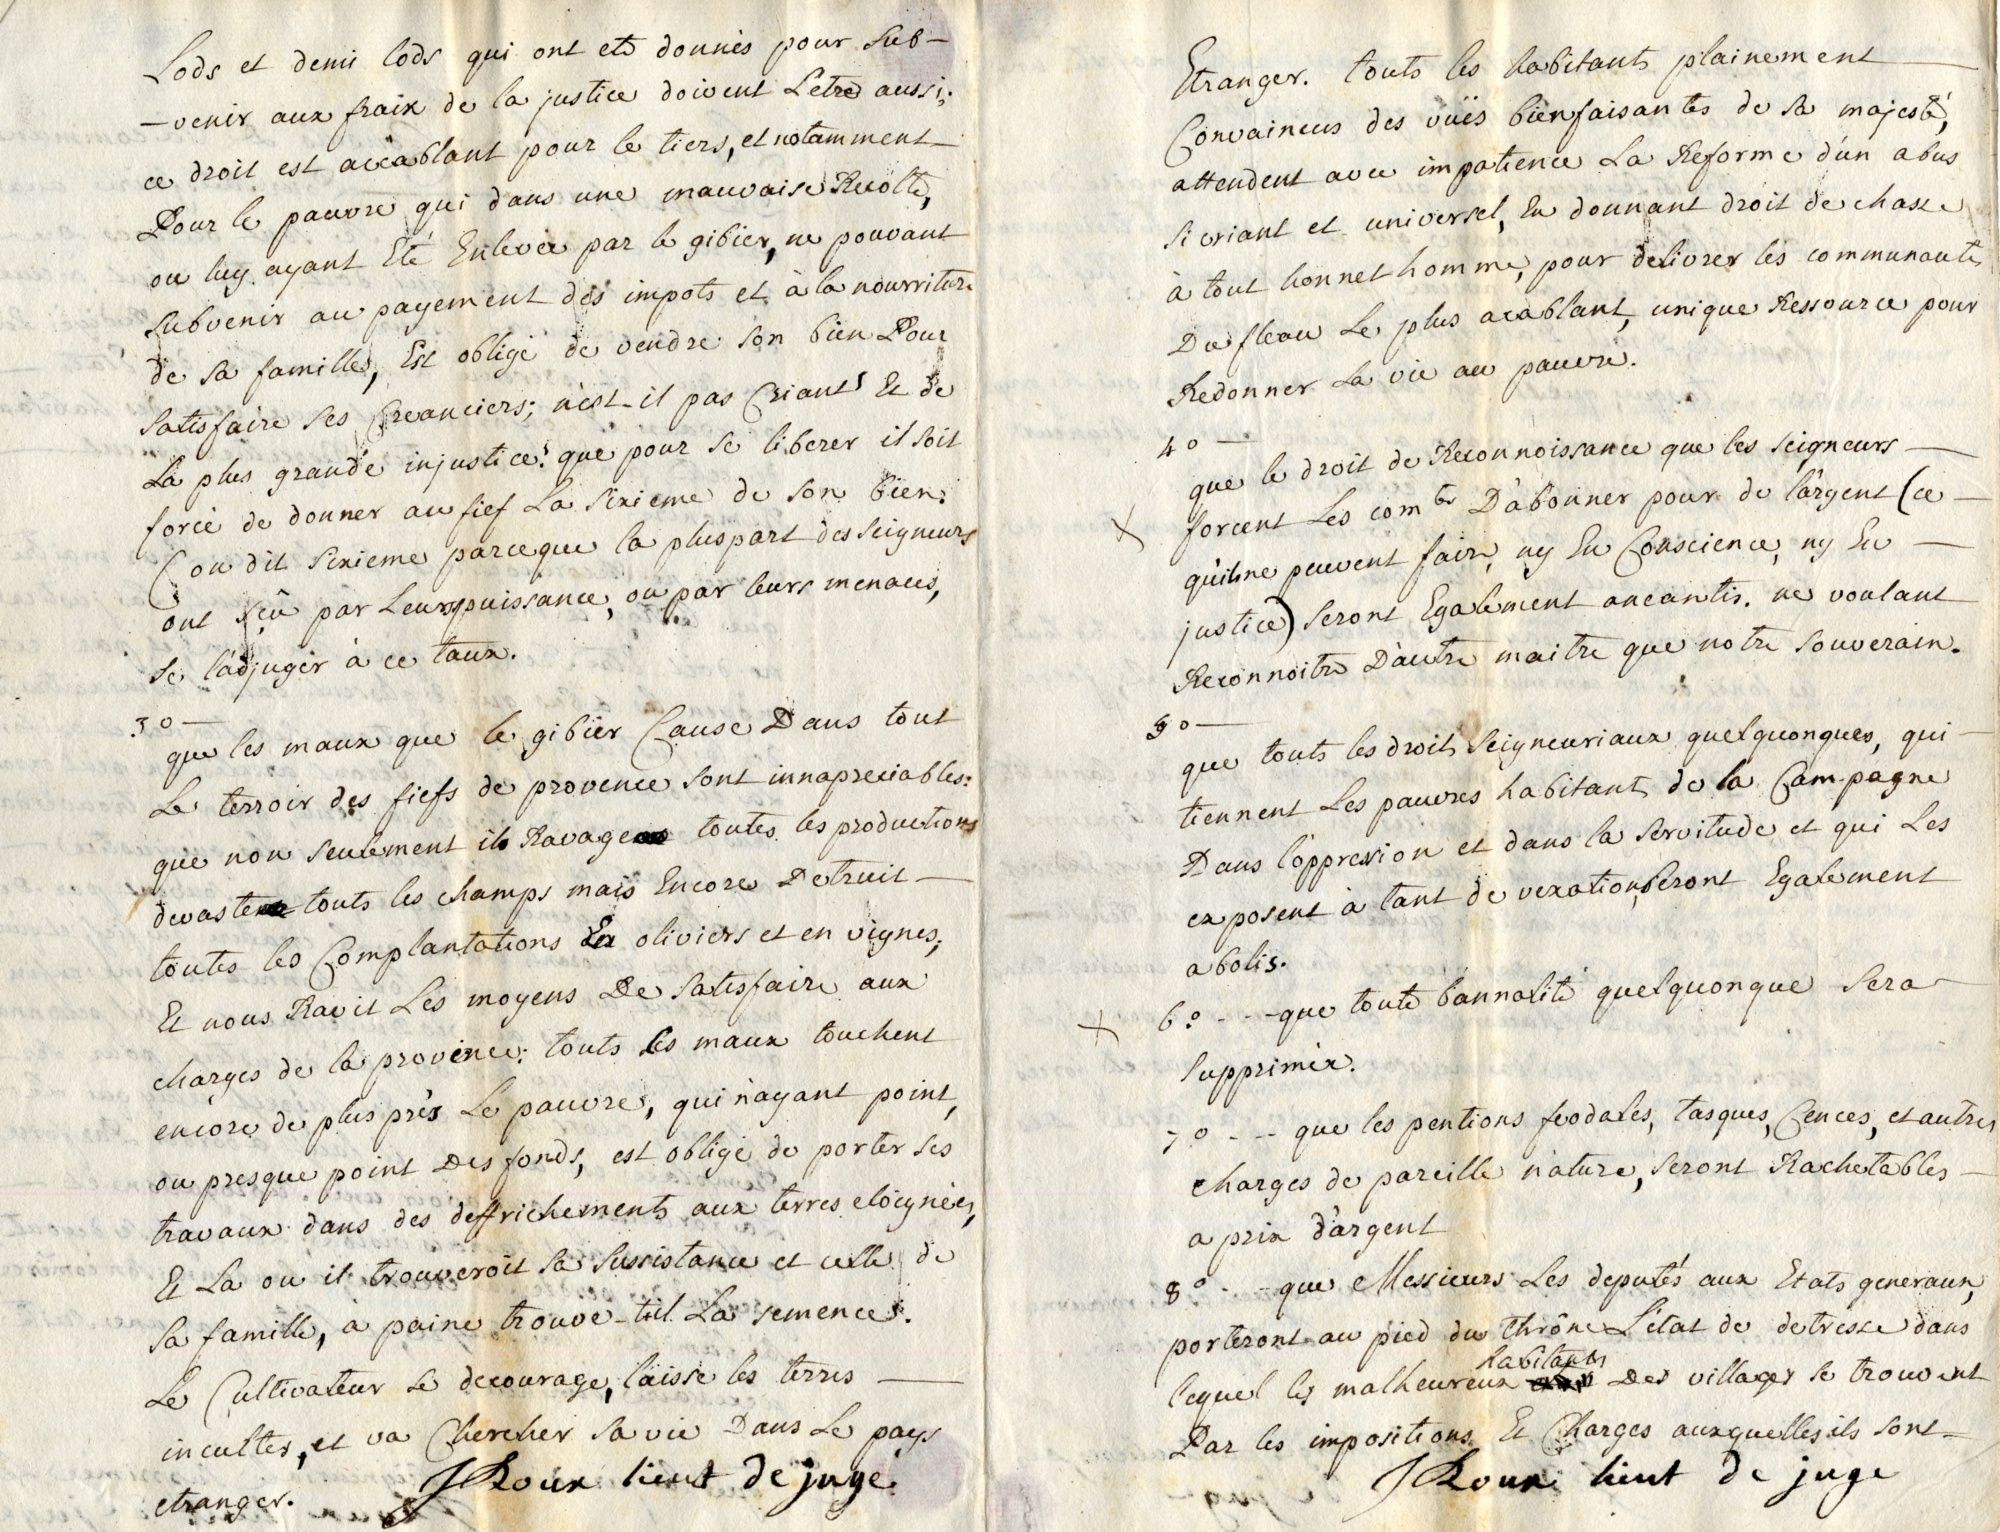 Lods et demi lods qui ont eté donnés pour sub-
-venir aux fraix de la justice doivent Letre aussi;
ce droit est accablant pour le tiers, et notamment
Pour le pauvre qui dans une mauvaise Recolte,
ou luy ayant Eté Enlevée par le gibier, ne pouvant
subvenir au payement des impots et à la nourriture
de sa famille, Est obligé de vendre son bien Pour
satisfaire ses Creanciers; n'est-il pas Criant! Et de
La plus grande injustice! que pour se liberer il soit
forcé de donner au fief La sixieme de son bien:
(on dit sixieme parceque la pluspart des seigneurs
ont sçû par Leurs puissance, ou par leurs menaces,
se l'adjuger à ce taux.
3° —
que les maux que le gibier Cause Dans tout
Le terroir des fiefs de provence sont innapreciables:
que non seulement ils Ravage toutes les productions
devaste touts les champs mais Encore Detruit —
toutes les Complantations En oliviers et en vignes;
Et nous Ravit Les moyens De satisfaire aux
charges de la province: touts les maux touchent
encore de plus près Le pauvre, qui n'ayant point,
ou presque point Des fonds, est obligé de porter ses
travaux dans des deffrichements aux terres eloignées,
Et La ou il trouveroit sa sussistance et celle de
sa famille, à paine trouve-t'il La semence.
Le Cultivateur se decourage, laisse les terres —
incultes, et va Chercher sa vie Dans Le pays
etranger.
JRoux lieut de juge
Etranger. touts les habitants plainement —
Convaincus des vuës bienfaisantes de sa majesté,
attendent avec impatience La Reforme d'un abus
si criant et universel, En donnant droit de chasse
à tout honnet homme, pour delivrer les communautés
Du fleau Le plus acablant, unique Ressource pour
Redonner La vie au pauvre.
4° —
que le droit de Reconnoissance que les seigneurs —
X forcent Les com.tés D'abonner pour de l'argent (ce —
qu'ils ne peuvent fair, ny En Conscience, ny En —
justice) seront Egalement aneantis. ne voulant
Reconnoitre D'autre maitre que notre souverain.
5° —
que touts les droits seigneuriaux quelquonques, qui —
tiennent Les pauvres habitants de la Campagne
Dans l'oppression et dans la servitude et qui Les
exposent à tant de vexations seront Egalement
abolis.
X 6° - - - que toute bannalité quelquonque sera —
supprimée.
7° - - - que les pentions feodales, tasques, Cences, et autres
charges de pareille nature, seront Rachetables —
a prix d'argent
8° - - - que Messieurs Les deputés aux Etats generaux,
porteront au pied du thrône L'état de detresse dans
lequel les malheureux habitants Des villages se trouvent
Par les impositions Et Charges auxquelles ils sont —
JRoux lieut de juge